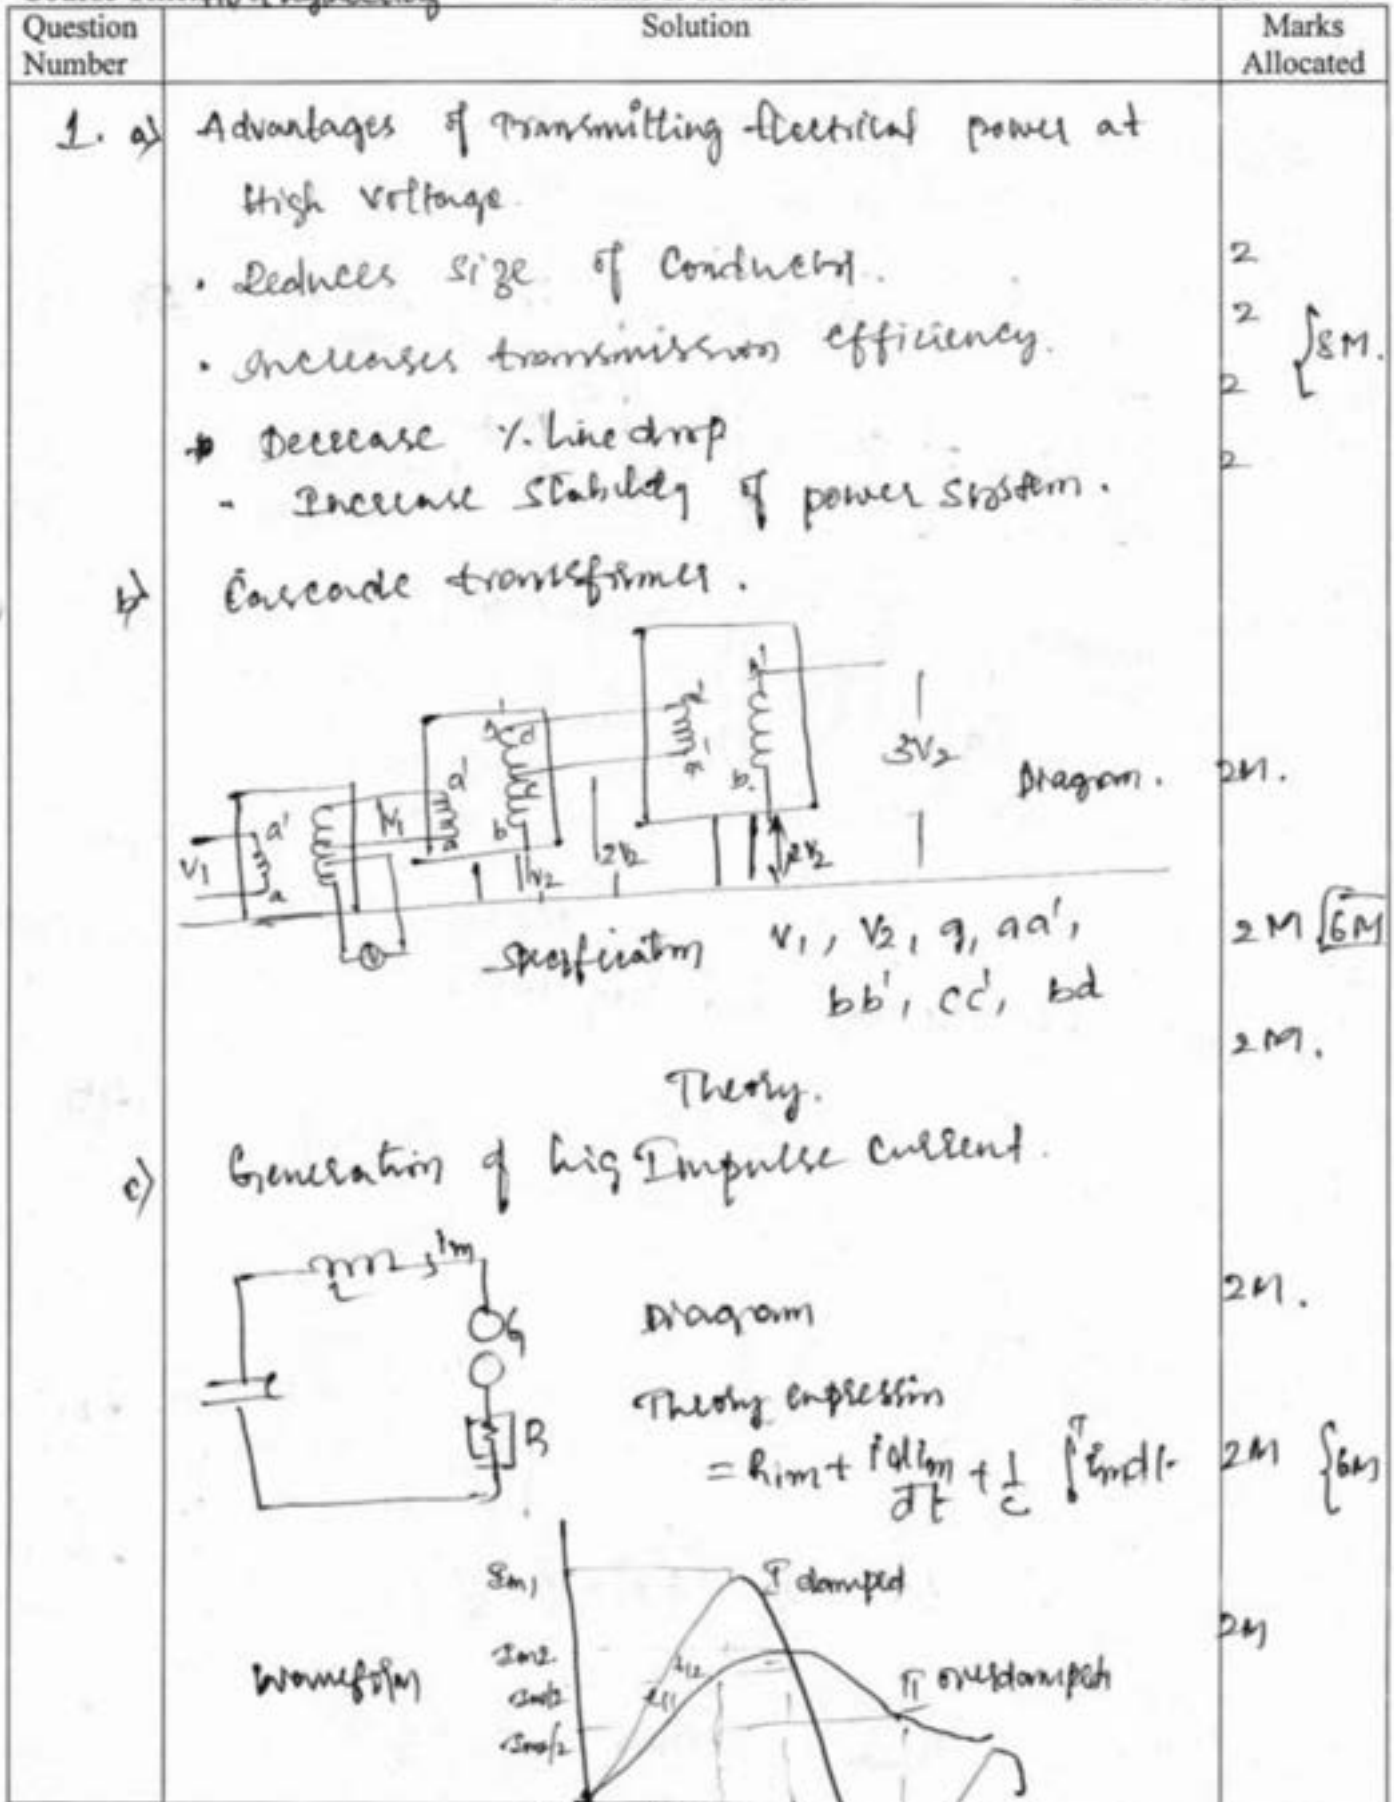 Question Number
Solution
Marks Allocated
1. a) Advantages of Transmitting Electrical power at
High Voltage.
• Reduces size of Conductor. 2
• Increases transmission efficiency. 2 {8M.
Decrease % Line drop 2
- Increase Stability of power system. 2
b) Cascade transformer.
V1 a' a V1 a' a b' d b a' a b' b 3V2
V2 2V2 2V2
V
Diagram. 2M.
Specification V1, V2, g, aa', 2M 6M
bb', cc', bd
Theory. 2M.
c) Generation of hig Impulse Current.
L Im
C G R
Diagram 2M.
Theory expression
= Rim + L dim/dt + 1/c ∫ imdt 2M {6M
Waveform 2M
Im1 I damped
Im2 II overdamped